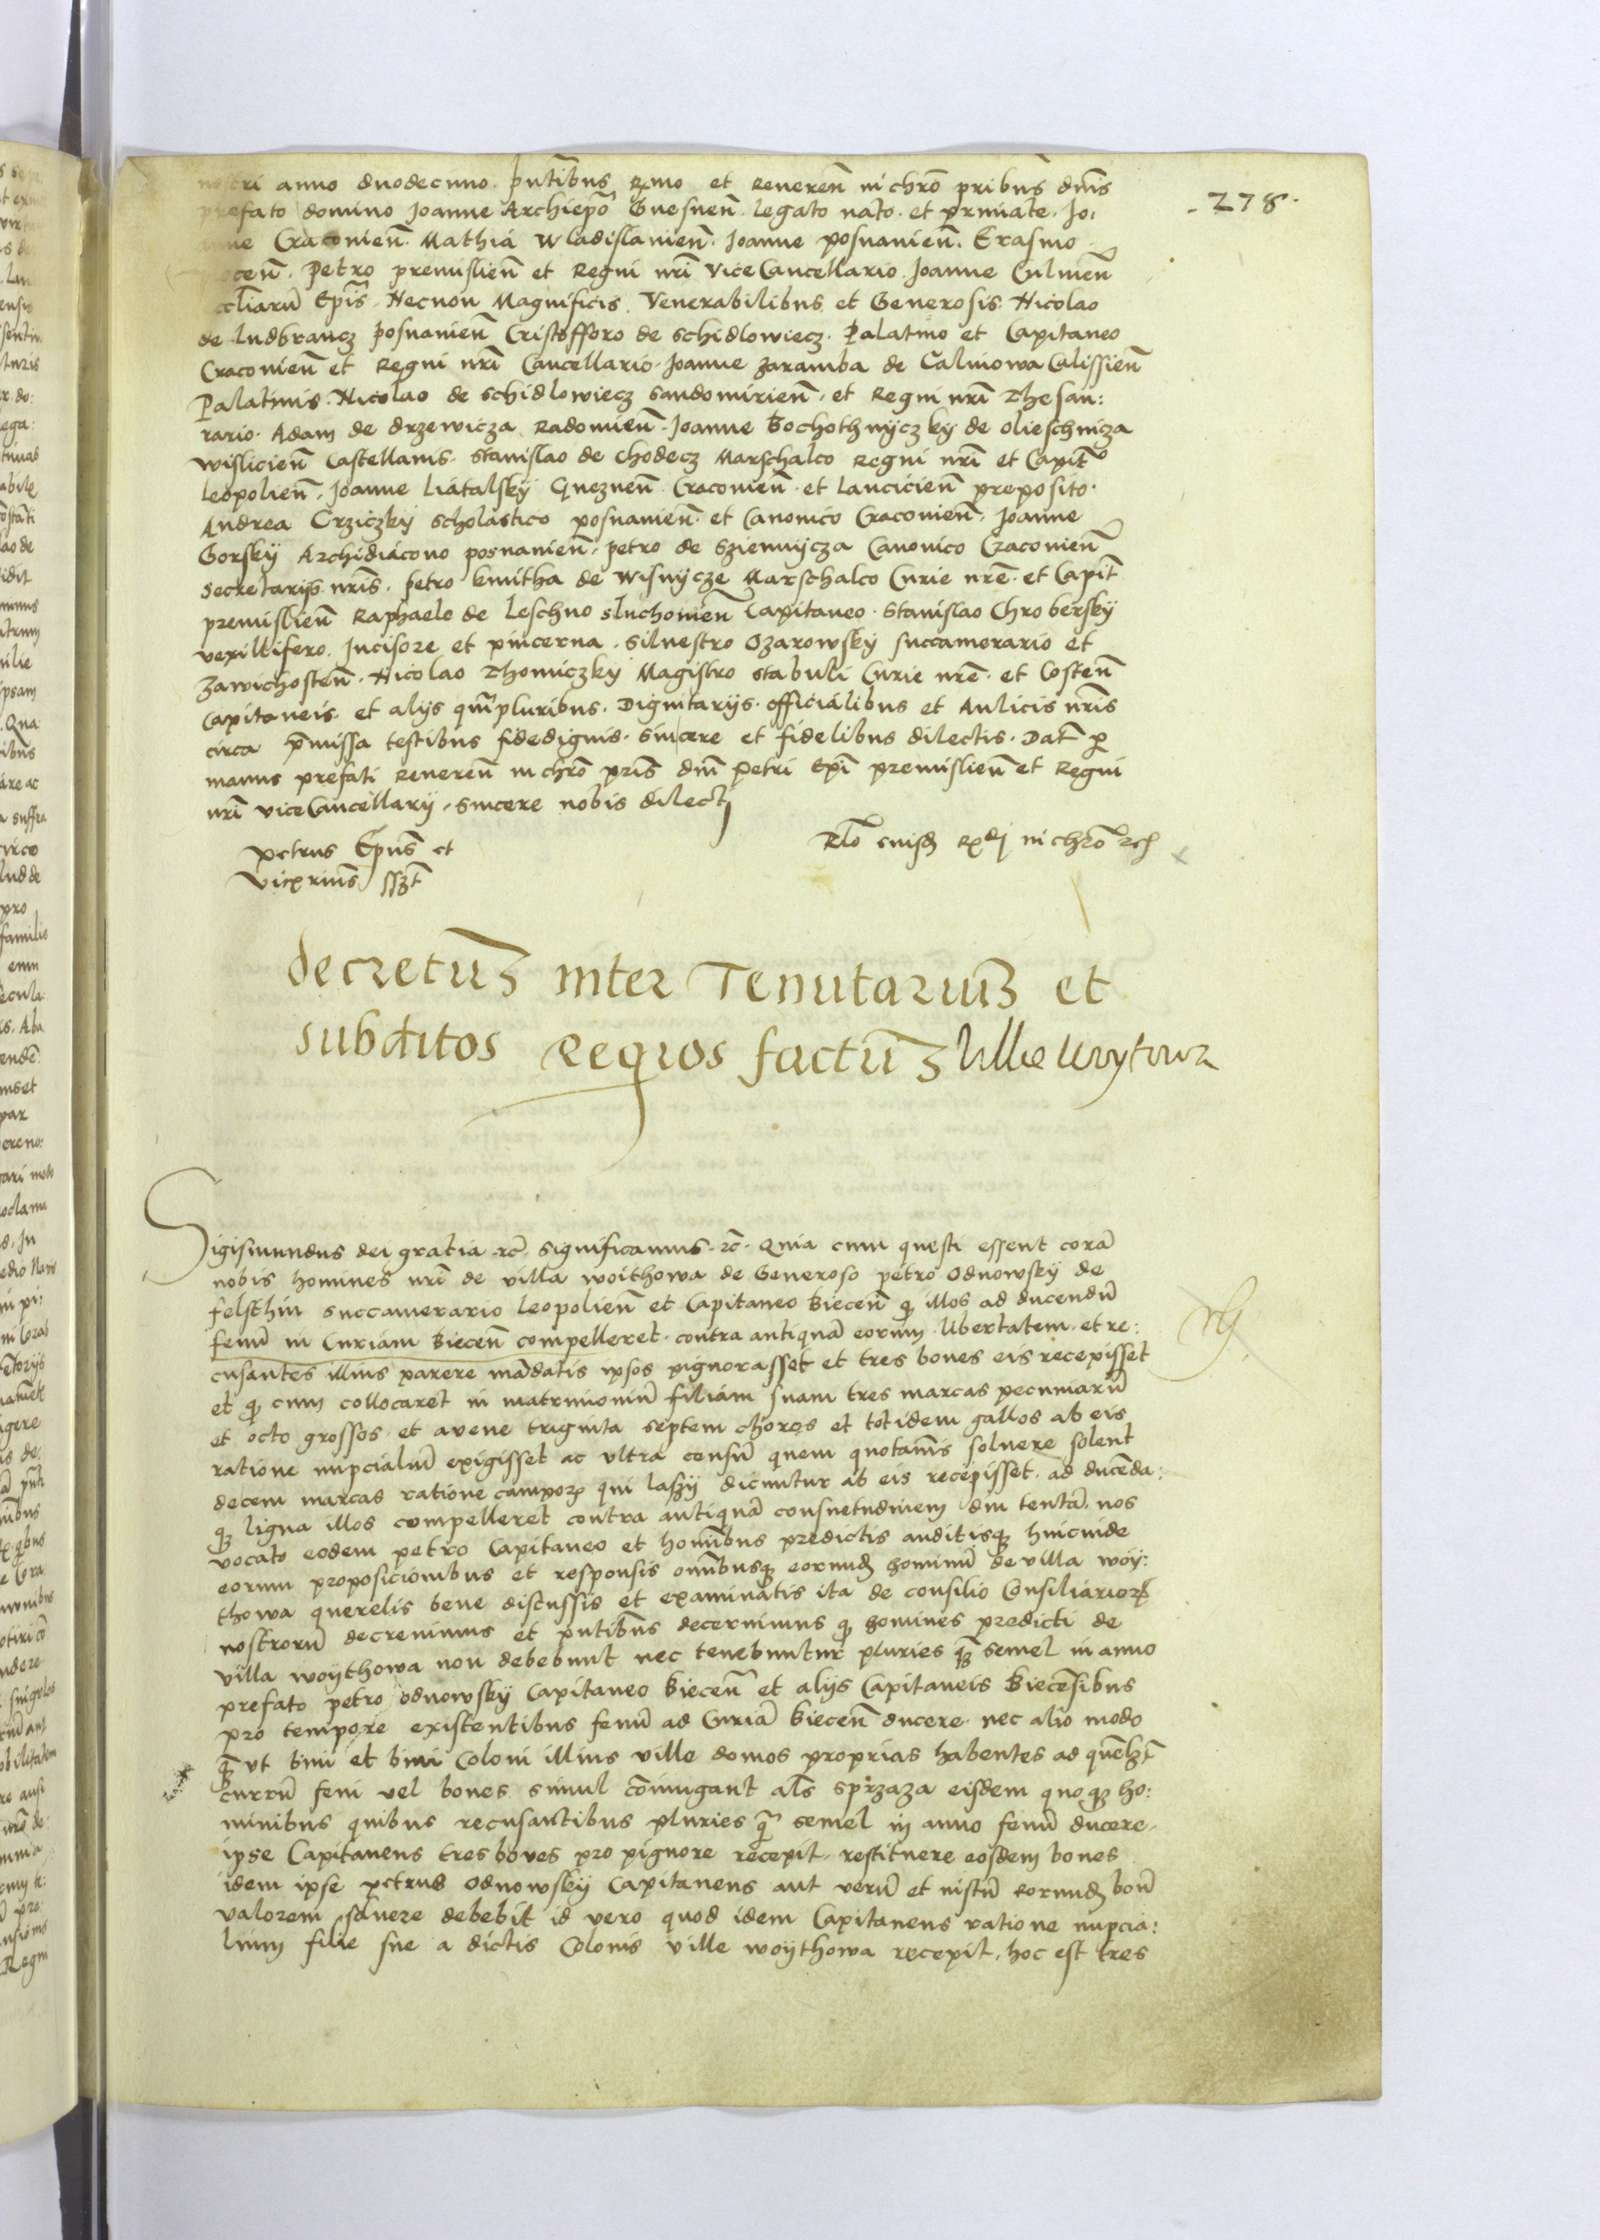 nostri anno duodecimo. pntibus Rmo et Reveren in chro pribus dnis
prefato domino Joanne Archiepo Gnesnen. legato nato. et primate. Jo:
anne Cracovien. Mathia Wladislavien. Joanne posnanien. Erasmo
Plocen. Petro premislien et Regni nri ViceCancellario. Joanne Culmen
eccliarum Epis. Necnon Magnificis Venerabilibus et Generosis Nicolao
de Ludbrancz posnanien Cristofforo de Schidlowiecz. Palatino et Capitaneo
Cracovien et Regni nri Cancellario. Joanne Zaramba de Calinowa Calissien
Palatinis. Nicolao de Schidlowiecz Sandomirien. et Regni nri Thesau:
rario. Adam de Drzewicza Radomien. Joanne Bochothnyczky de Olieschnicza
Wislicien Castellanis. Stanislao de Chodecz Marschalco Regni nri et Capit
Leopolien. Joanne Liatalsky Gneznen Cracovien. et Lancicien preposito.
Andrea Crziczky scholastico posnanien. et Canonico Cracovien. Joanne
Gorsky Archidiacono posnanien. Petro de Sziennycza Canonico Cracovien
Secretarys nris. Petro Kmitha de Wisnycze Marschalco Curie nre. et Capit
premislien Raphaele de Leschno Sluchovien Capitaneo. Stanislao Chrobersky
vexillifero. Incisore et pincerna. Silvestro Ozarowsky succamerario et
Zawichosten. Nicolao Thomiczky Magistro Stabuli Curie nre. et Costen
Capitaneis et alys qmpluribus. Dignitarys. officialibus et Aulicis nris
circa pmissa testibus fidedignis. Sincere et fidelibus dilectis. Dat p
manus prefati Reveren in chro pris dni Petri Epi premislien et Regni
nri ViceCancellary. Sincere nobis dilecti
Petrus Epus et Rlo eiusd Rxdi in chro rc
Vicxrius sszt
decretum inter Tenutarium et
subditos Regios factum Ville Woytowa
Sigismundus dei gratia rc. Significamus. rc. Quia cum questi essent cora
nobis homines nri de villa Woithowa de Generoso Petro Odnowsky de
felsthin succamerario Leopolien et Capitaneo Biecen q illos ad ducendu
fenu in Curiam Biecen compelleret. contra antiqua eorum libertatem. et re:
cusantes illius parere madatis ipsos pignorasset et tres boves eis recepisset
et q cum collocaret in matrimoniu filiam suam tres marcas pecuniaru
et octo grossos et avene triginta septem choros et totidem gallos ab eis
ratione nupcialiu exigisset ac ultra censu quem quotannis solvere solent
decem marcas ratione campor qui lazy dicuntur ab eis recepisset. ad ducenda:
q ligna illos compelleret contra antiqua consuetudinem diu tenta. nos
vocato eodem petro Capitaneo et hominibus predictis auditisq hincinde
eorum proposicionibus et responsis omnibusq eorund hominu de villa Woy:
thowa querelis bene discussis et examinatis ita de consilio Consiliarior
nostroru decrevimus et pntibus decernimus q homines predicti de
villa Woythowa non debebunt nec tenebuntur pluries q semel in anno
prefato petro Odnowsky Capitaneo Biecen et alys Capitaneis Biecesibus
pro tempore existentibus fenu ad Curia Biecen ducere. nec alio modo
q ut bini et bini Coloni illius ville domos proprias habentes ad quelzt
curru feni vel boves simul coniugant als sprzaza eisdem quoq ho:
minibus quibus recusantibus pluries q semel in anno fenu ducere.
ipse Capitaneus tres boves pro pignore recepit. restituere eosdem boves
idem ipse Petrus Odnowsky Capitaneus aut veru et iustu eorund bou
valorem solvere debebit id vero quod idem Capitaneus ratione nupcia:
lium filie sue a dictis Colonis ville Woythowa recepit, hoc est tres
278.